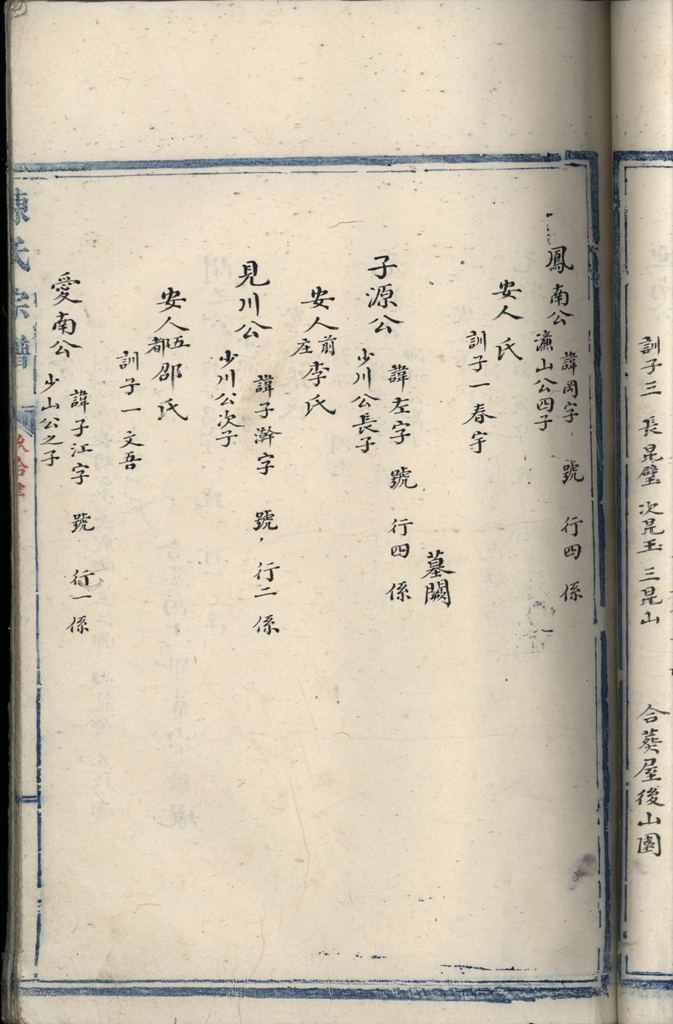 訓子三 長昆璧 次昆玉 三昆山 合葬屋後山園
鳳南公 諱岡字 號 行四 係
濂山公四子
安人 氏
訓子一 春宇
墓闕
子源公 諱左字 號 行四 係
少川公長子
安人前庄李氏
見川公 諱子瀚字 號 行二 係
少川公次子
安人五都邵氏
訓子一 文吾
愛南公 諱子江字 號 行一 係
少山公之子
陳氏宗譜